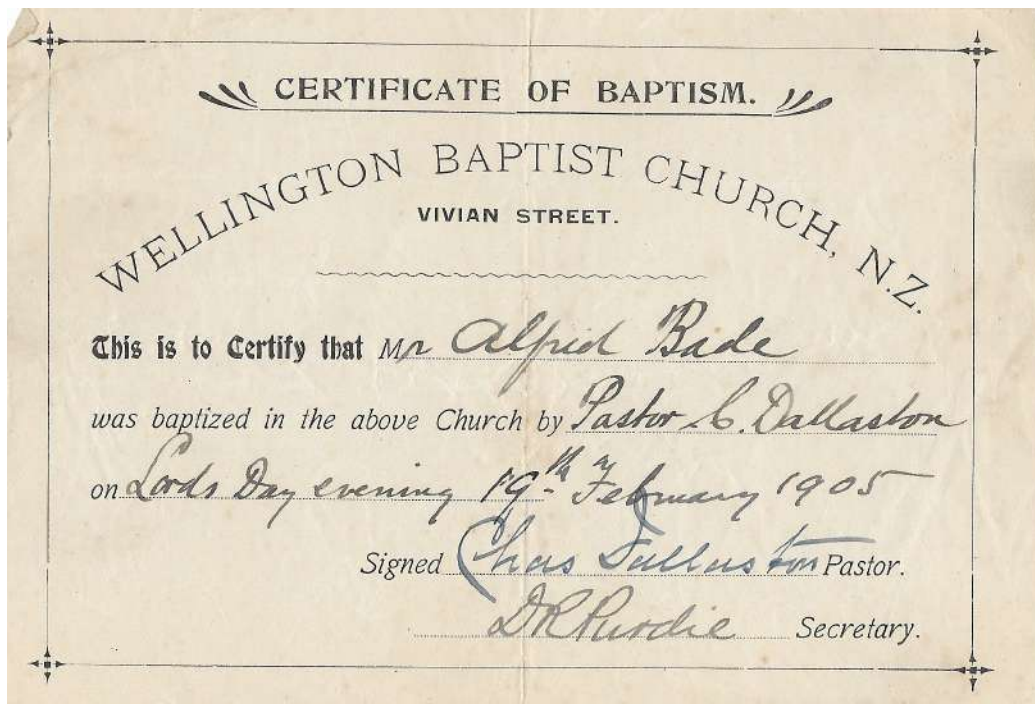 CERTIFICATE OF BAPTISM.
WELLINGTON BAPTIST CHURCH, N.Z.
VIVIAN STREET.
This is to Certify that Mr Alfred Bade
was baptized in the above Church by Pastor C. Dallaston
on Lords Day evening 19th February 1905
Signed Chas Dallaston Pastor.
DR Purdie Secretary.